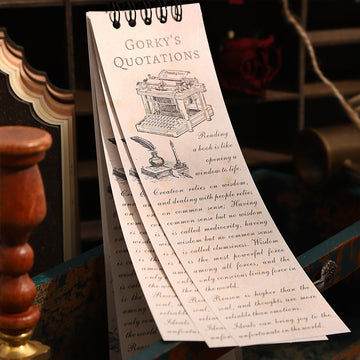 GORKY'S
QUOTATIONS
Reading
a book is like
opening a
window to life.
Creation relies on wisdom,
and dealing with people relies
on common sense; Having
common sense but no wisdom
is called mediocrity, having
wisdom but no common sense
is called clumsiness. Wisdom
is the most powerful force
among all forces, and the
only conscious living force in
the world.
Reason is higher than the
heart, and thoughts are more
reliable than emotions.
Ideals can bring joy to the
unfortunate in the world